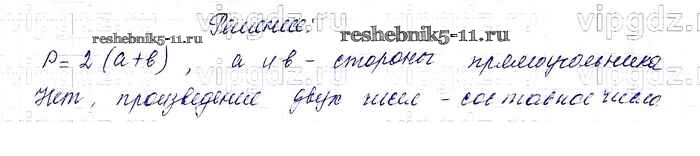 Решение:
reshebnik5-11.ru
reshebnik5-11.ru
P = 2 (а+в) , а и в - стороны прямоугольника
Нет, произведение двух чисел - составное число